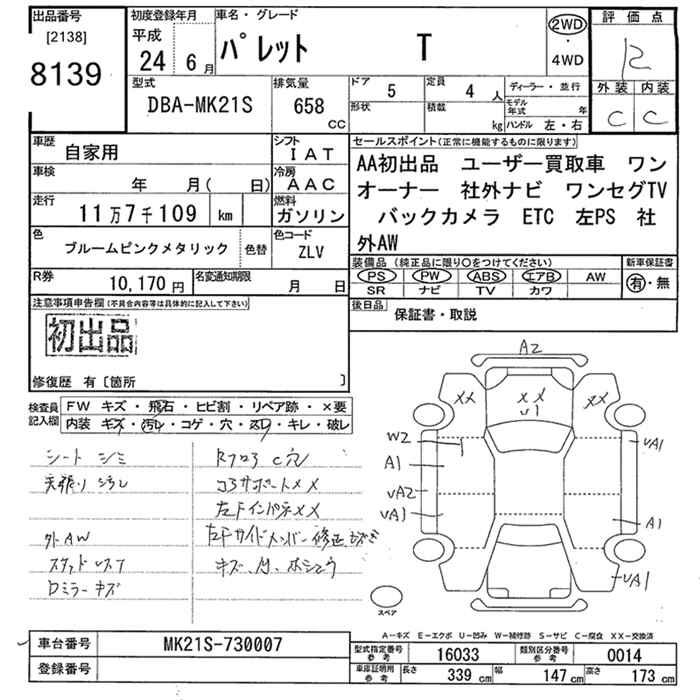 出品番号
[2138]
8139
初度登録年月
平成
24 6月
車名・グレード
パレット T
2WD
・
4WD
評価点
R
外装 内装
C C
型式
DBA-MK21S
排気量
658
CC
ドア
5
定員
4 人
形状
積載
kg
ディーラー・並行
モデル年式 年
ハンドル 左・右
車歴
自家用
シフト
IAT
車検
年 月( 日)
冷房
AAC
走行
11万7千109 km
燃料
ガソリン
色
ブルームピンクメタリック
色替
色コード
ZLV
R券
10,170円
名変通知期限
月 日
セールスポイント(正常に機能するものに限ります)
AA初出品 ユーザー買取車 ワン
オーナー 社外ナビ ワンセグTV
バックカメラ ETC 左PS 社
外AW
装備品 (純正品に限り○をつけてください)
PS PW ABS エアB AW
SR ナビ TV カワ
新車保証書
有・無
後日品
保証書・取説
注意事項申告欄(不具合内容等は具体的に記入して下さい)
初出品
修復歴 有〔箇所 〕
検査員
記入欄
FW キズ・飛石・ヒビ割・リペア跡・×要
内装 キズ・汚れ・コゲ・穴・スレ・キレ・破レ
シート シミ
天張り 汚れ
外AW
スタッドレス
ロミラー キズ
コアサポートXX
左Fインパネ XX
左Fサイドメンバー 修正
キズ、
A2
XX
XX
U1
XX
W2
A1
UA2
UA1
UA1
A1
UA1
スペア
A-キズ E-エクボ U-凹み W-補修跡 S-サビ C-腐食 XX-交換済
車台番号
MK21S-730007
登録番号
型式指定番号
参考
16033
類別区分番号
参考
0014
車庫証明用
参考
長さ 339 cm 幅 147 cm 高さ 173 cm